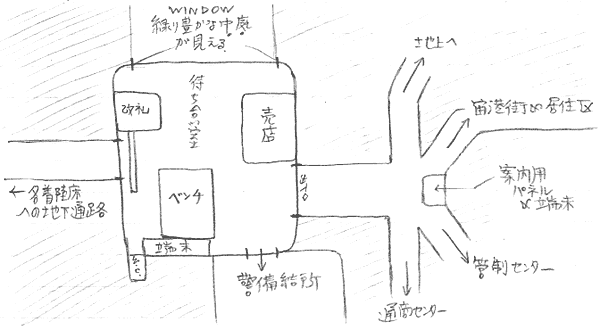 WINDOW
緑り豊かな中庭
が見える
待ち合い室
改札
売店
ベンチ
端末
←各着陸床
への地下通路
警備結所
地上へ
宙港街&居住区
案内用
パネル
&端末
管制センター
通商センター